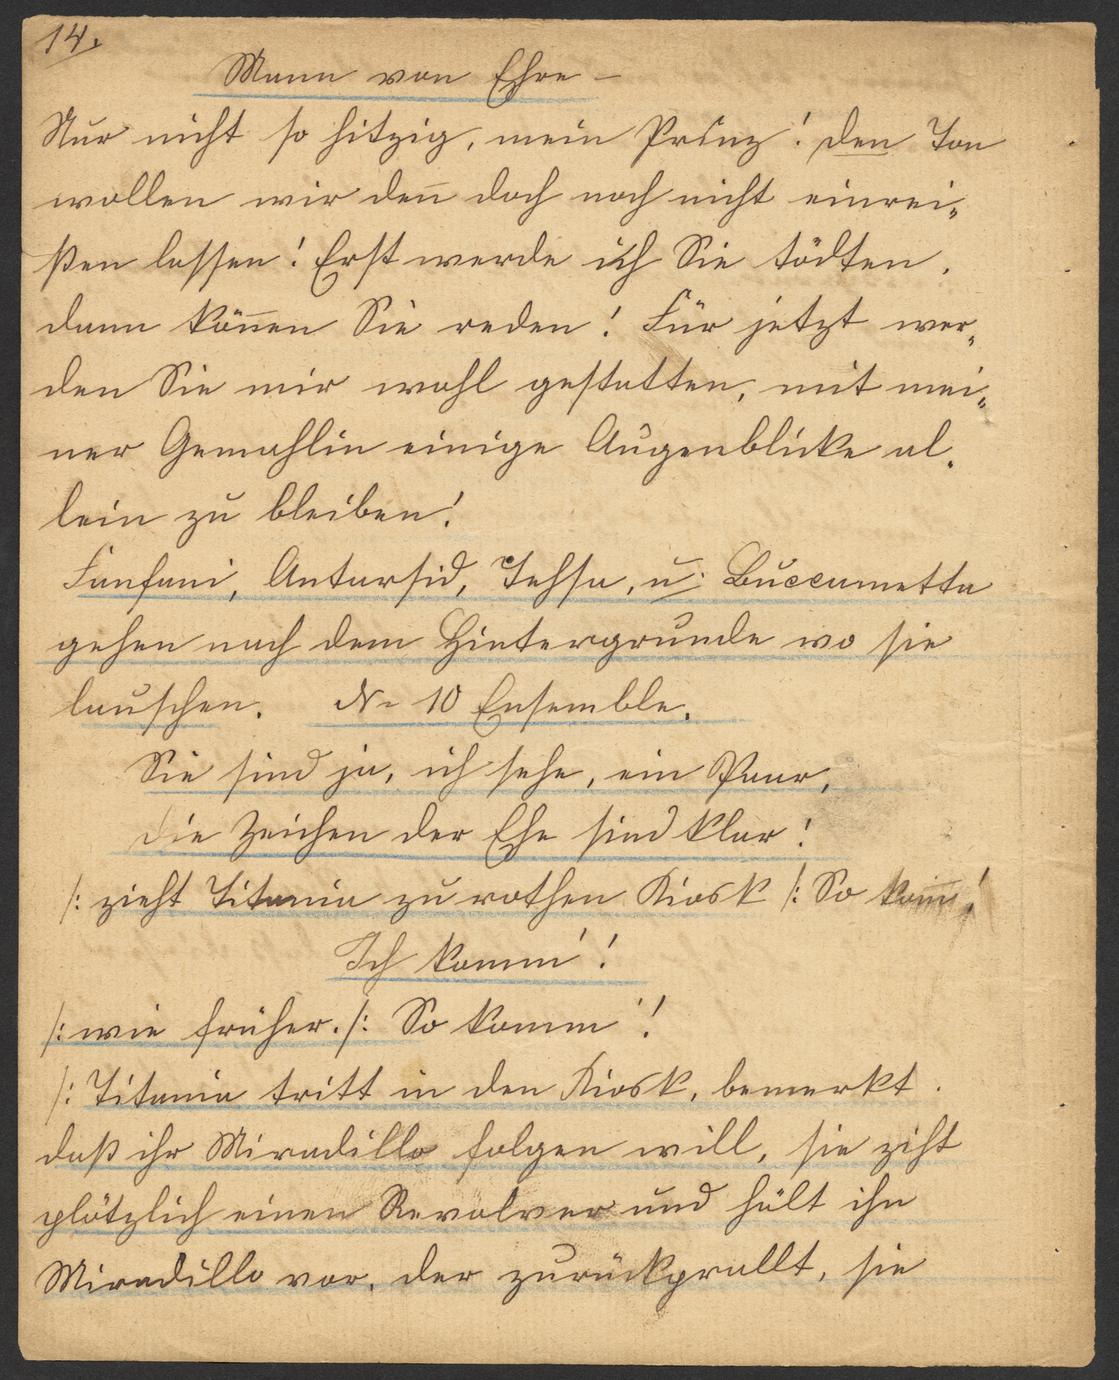 14.
Mann von Ehre –
Nur nicht so hitzig, mein Prinz! den Ton
wollen wir den̅ doch noch nicht einrei„
ßen lassen! Erst werde ich Sie tödten,
dann kön̅en Sie reden! Für jetzt wer„
den Sie mir wohl gestatten, mit mei„
ner Gemahlin einige Augenblicke al„
lein zu bleiben!
Fanfani, Antarsid, Tehsa, u: Buccametta
gehen nach dem Hintergrunde wo sie
lauschen. No 10 Ensemble.
Sie sind ja, ich sehe, ein Paar,
die Zeichen der Ehe sind klar!
/: zieht Titania zu rothen Kiosk /: So kom̅!
Ich komm'!
/: wie früher. /: So komm'!
/: Titania tritt in den Kiosk, bemerkt.
daß ihr Miradillo folgen will, sie ziht
plötzlich einen Revolver und hält ihn
Miradillo vor, der zurückprallt, sie